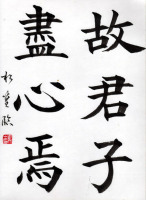 故君子
盡心焉